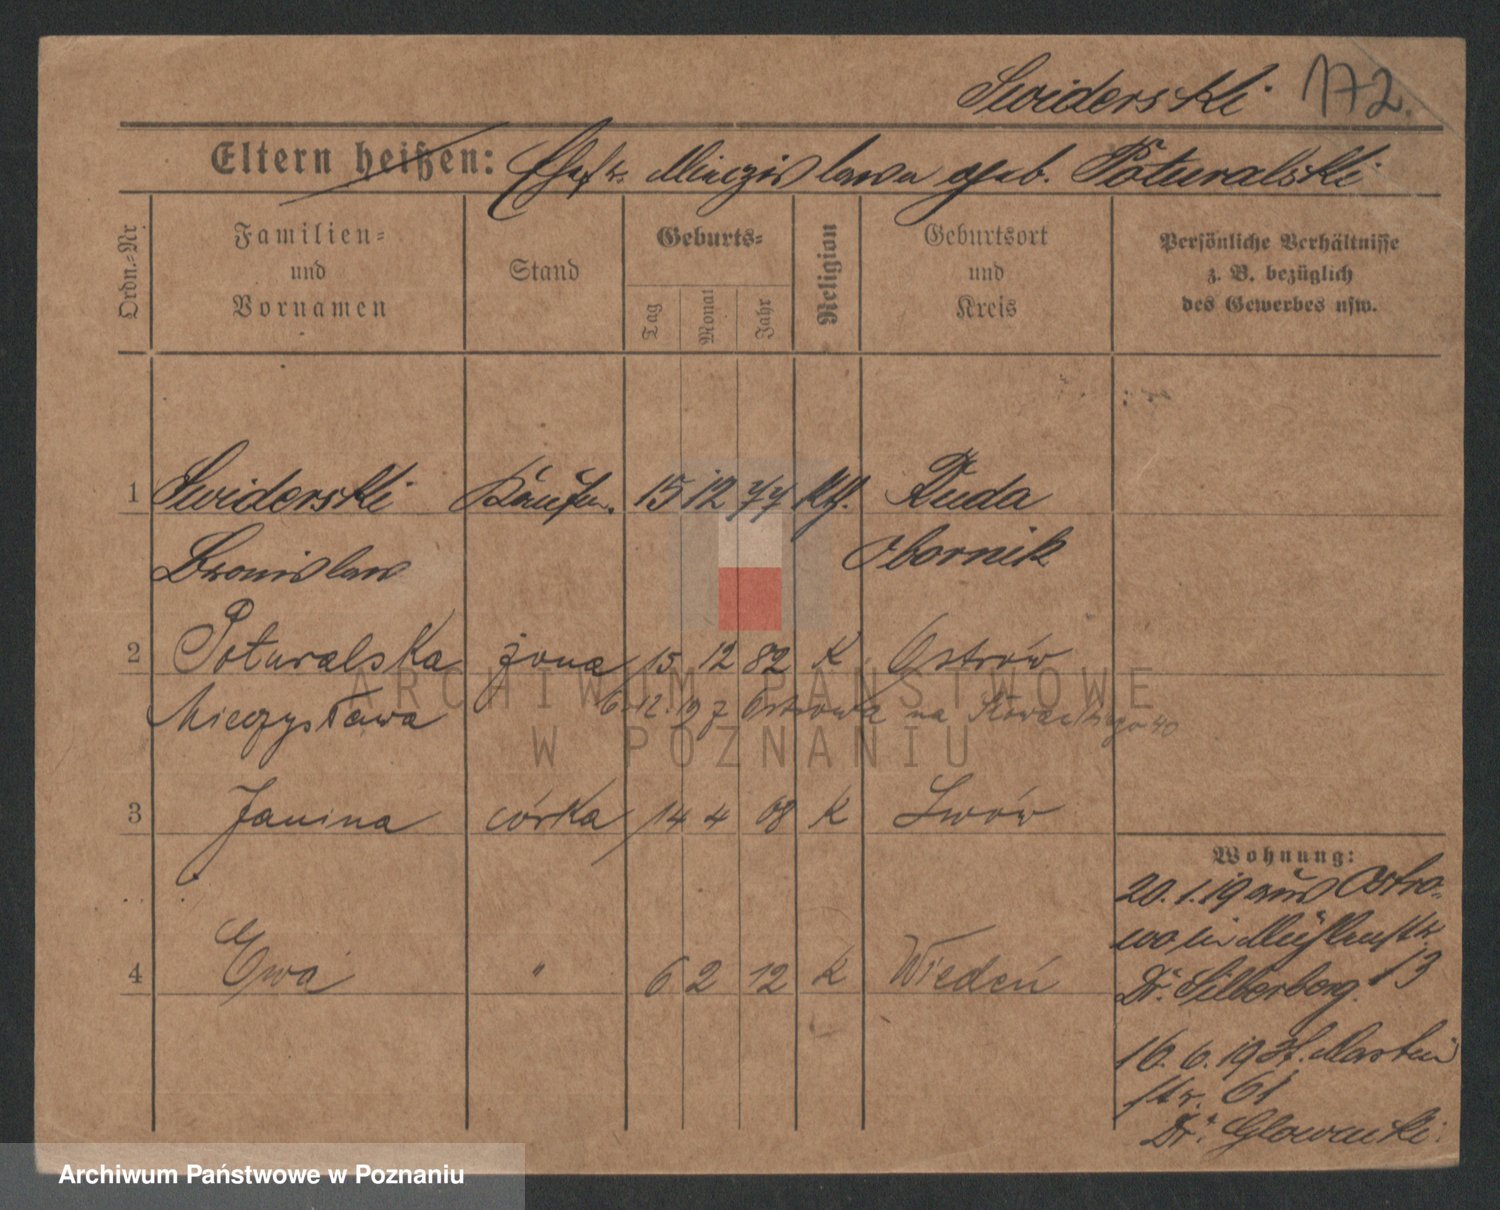 Swiderski 172.
Eltern heißen: Ehefr. Mieczislawa geb. Poturalski
Ordn.-Nr
Familien= und Vornamen
Stand
Geburts=
Tag
Monat
Jahr
Religion
Geburtsort und Kreis
Persönliche Verhältnisse
z. B. bezüglich
des Gewerbes usw.
1 Swiderski Kaufm. 15 12 77 Kth. Ruda
Bronislaw Obornik
2 Poturalska żona 15 12 82 K Ostrów
Mieczysława 6.12.19 z Ostrowa na Słowackiego 40
3 Janina córka 14 4 08 K Lwów
4 Ewa " 6 2 12 K Wiedeń
Wohnung:
20.1.19 aus Ostro-
wo in Mühlenstr
13
Dr. Silberberg.
16.6.19 St. Martin
str. 61
Dr. Glowacki.
ARCHIWUM PAŃSTWOWE
W POZNANIU
Archiwum Państwowe w Poznaniu